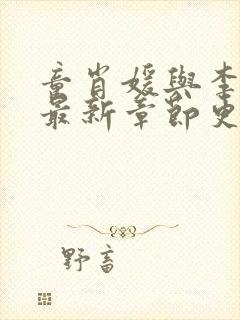 童肖媛與李
最新章節史
野畜